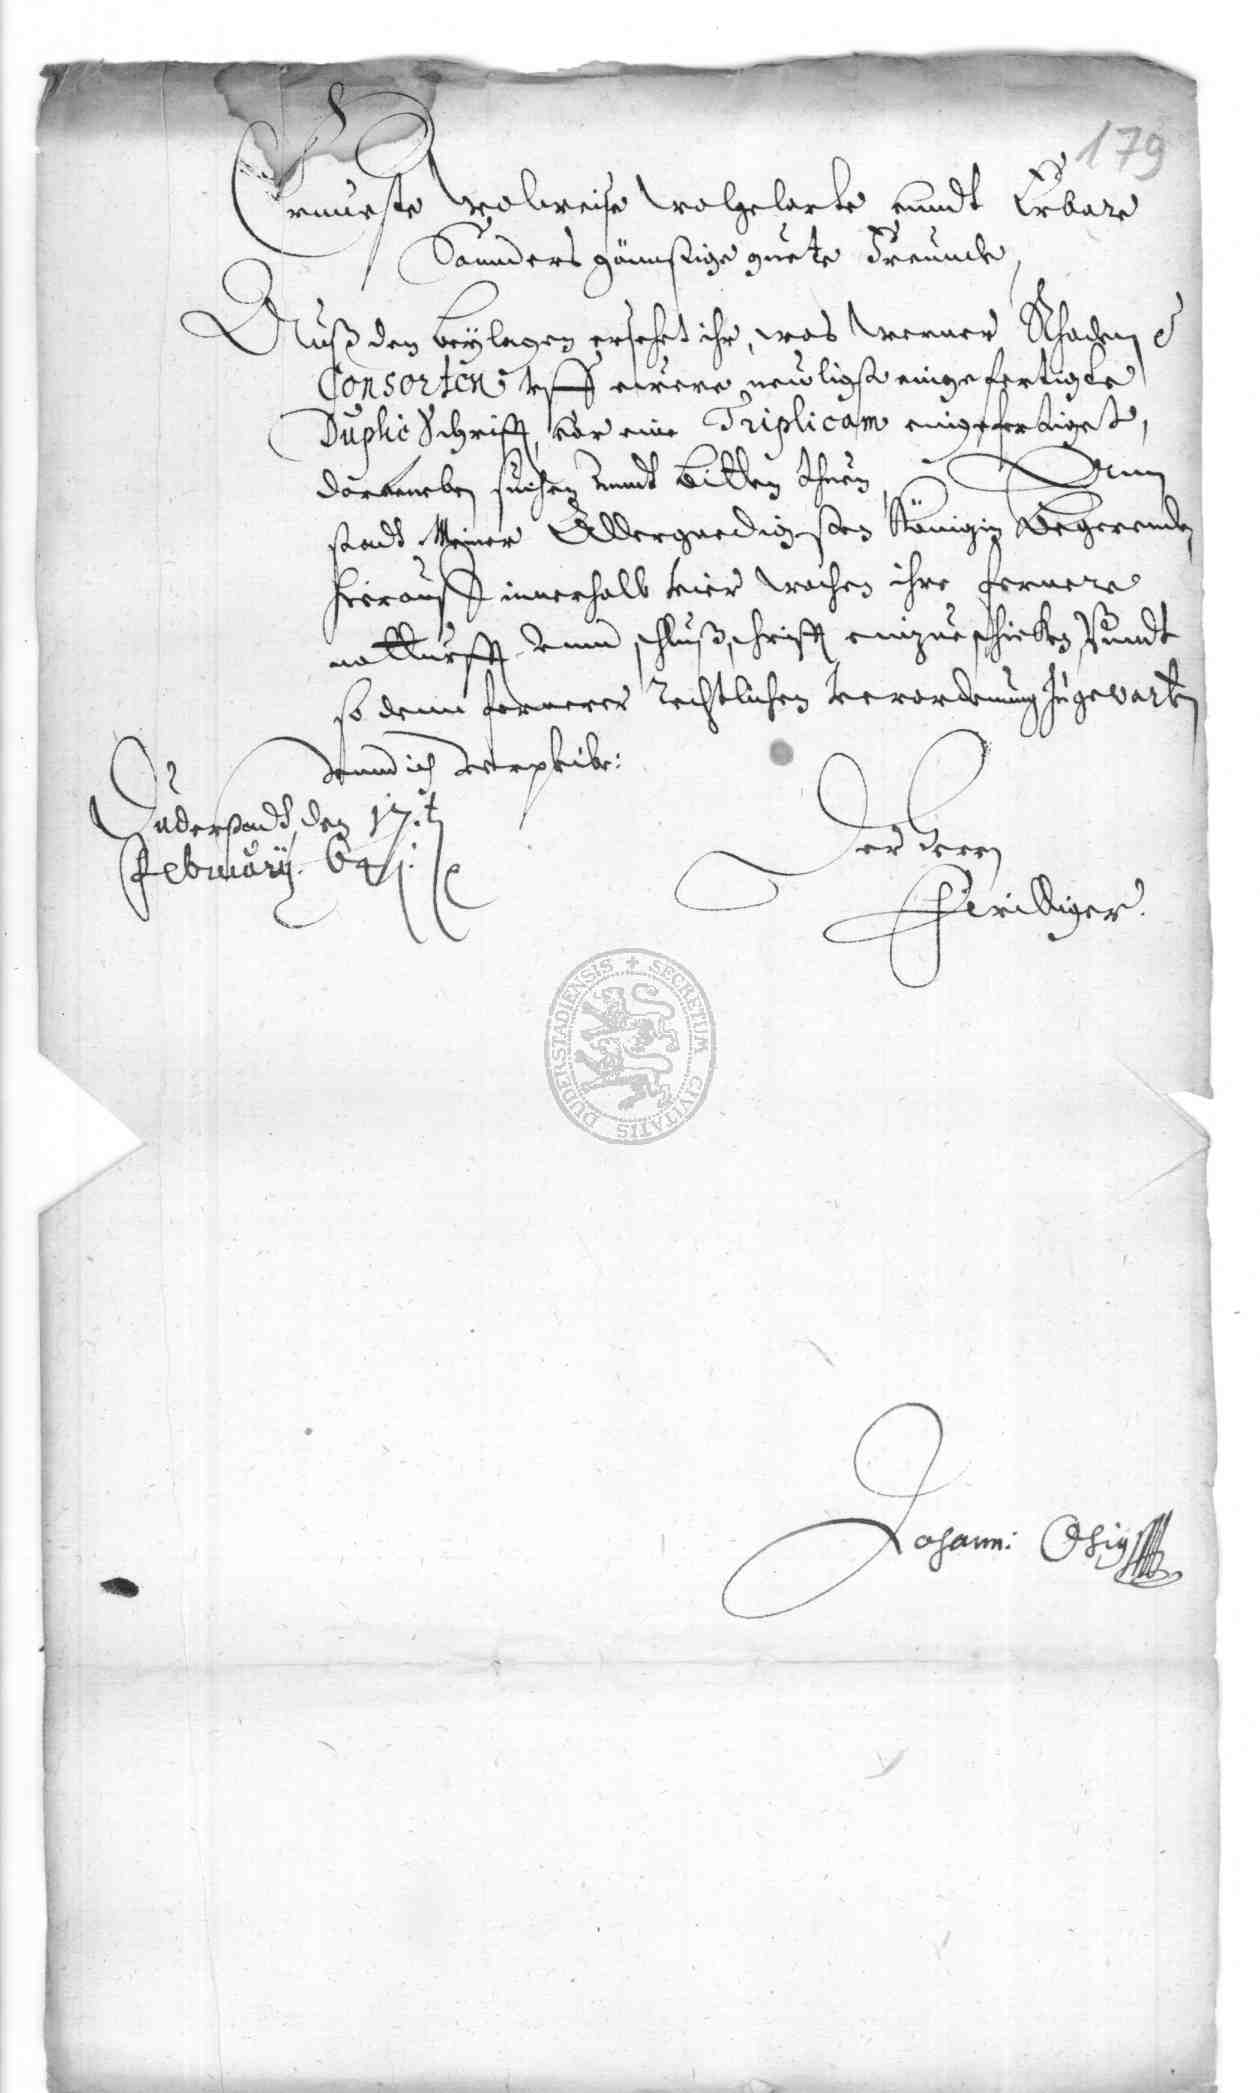 179
Ernueste Wolweise Wolgelarte unndt Erbare
Sonnders günnstige guete Freunde,
Auß den beÿlagen ersehet ihr, was Werner Schaden &
Consorten vff euere neuligst eingefertigte
Duplic Schrifft, vor eine Triplicam eingefertiget,
darneneben suchen unndt bitten thuen,
stadt Meiner Allergnedigsten Königin Begerende,
hierauff innerhalb vier wochen ihre fernere
notturfft unnd schlußschrifft einzueschicken, Vnndt
so denn fernerer rechtlichen verordenung zugewarten
dennich verpleibe:
Duderstadt, den 17.t
February. 641.
Der Herrn
Gutwilliger.
Johann:
DUDERSTADIENSIS + SECRETUM CIVITATIS